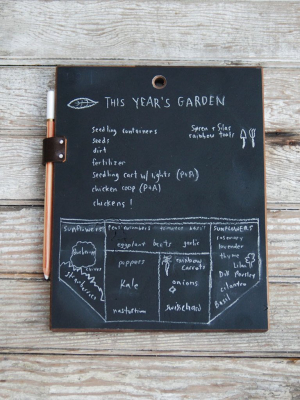 THIS YEAR'S GARDEN
Seedling containers
seeds
dirt
fertilizer
Seedling cart w/ lights (P+A)
chicken coop (P+A)
chickens!
Soren + Silas
rainbow tools
SUNFLOWERS
cucumbers tomatoes basil
eggplant beets garlic
peppers
Kale
nasturtium
rainbow
carrots
onions
SUNFLOWERS
rosemary
lavender
thyme
Lilac
Dill Parsley
cilantro
Basil